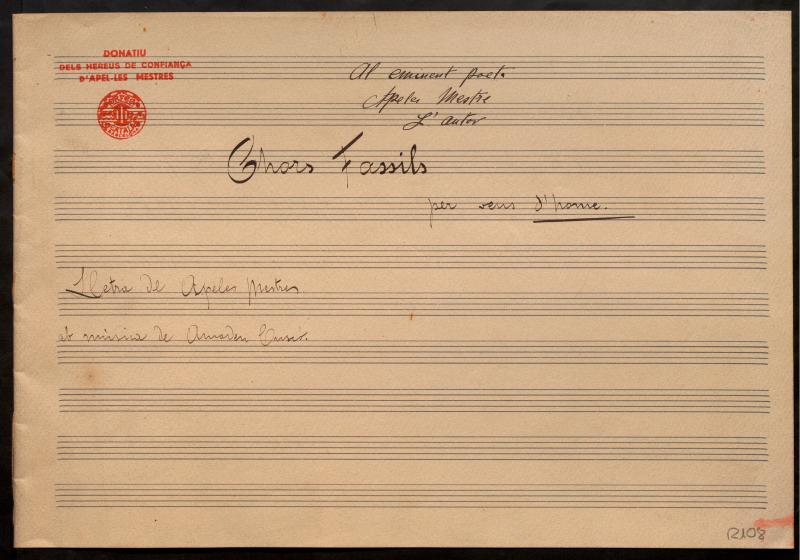 DONATIU
DELS HEREUS DE CONFIANÇA
D'APEL·LES MESTRES
Al eminent poeta
Apeles Mestre
L'autor
Chors Fassils
per veus d'home.
Lletra de Apeles Mestres
ab música de Amadeu Cuscó.
R108